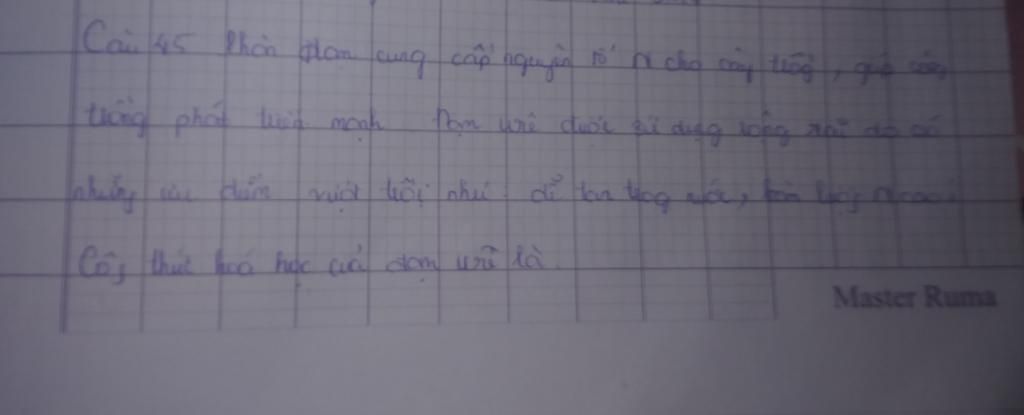 Câu 45 Phân đạm cung cấp nguyên tố N cho cây trồng, giúp cây
trồng phát triển mạnh Đạm urê được sử dụng rộng rãi do có
những ưu điểm vượt trội như: dễ tan trog nước, hàm lượng N cao.
Côg thức hoá học của đạm urê là
Master Ruma